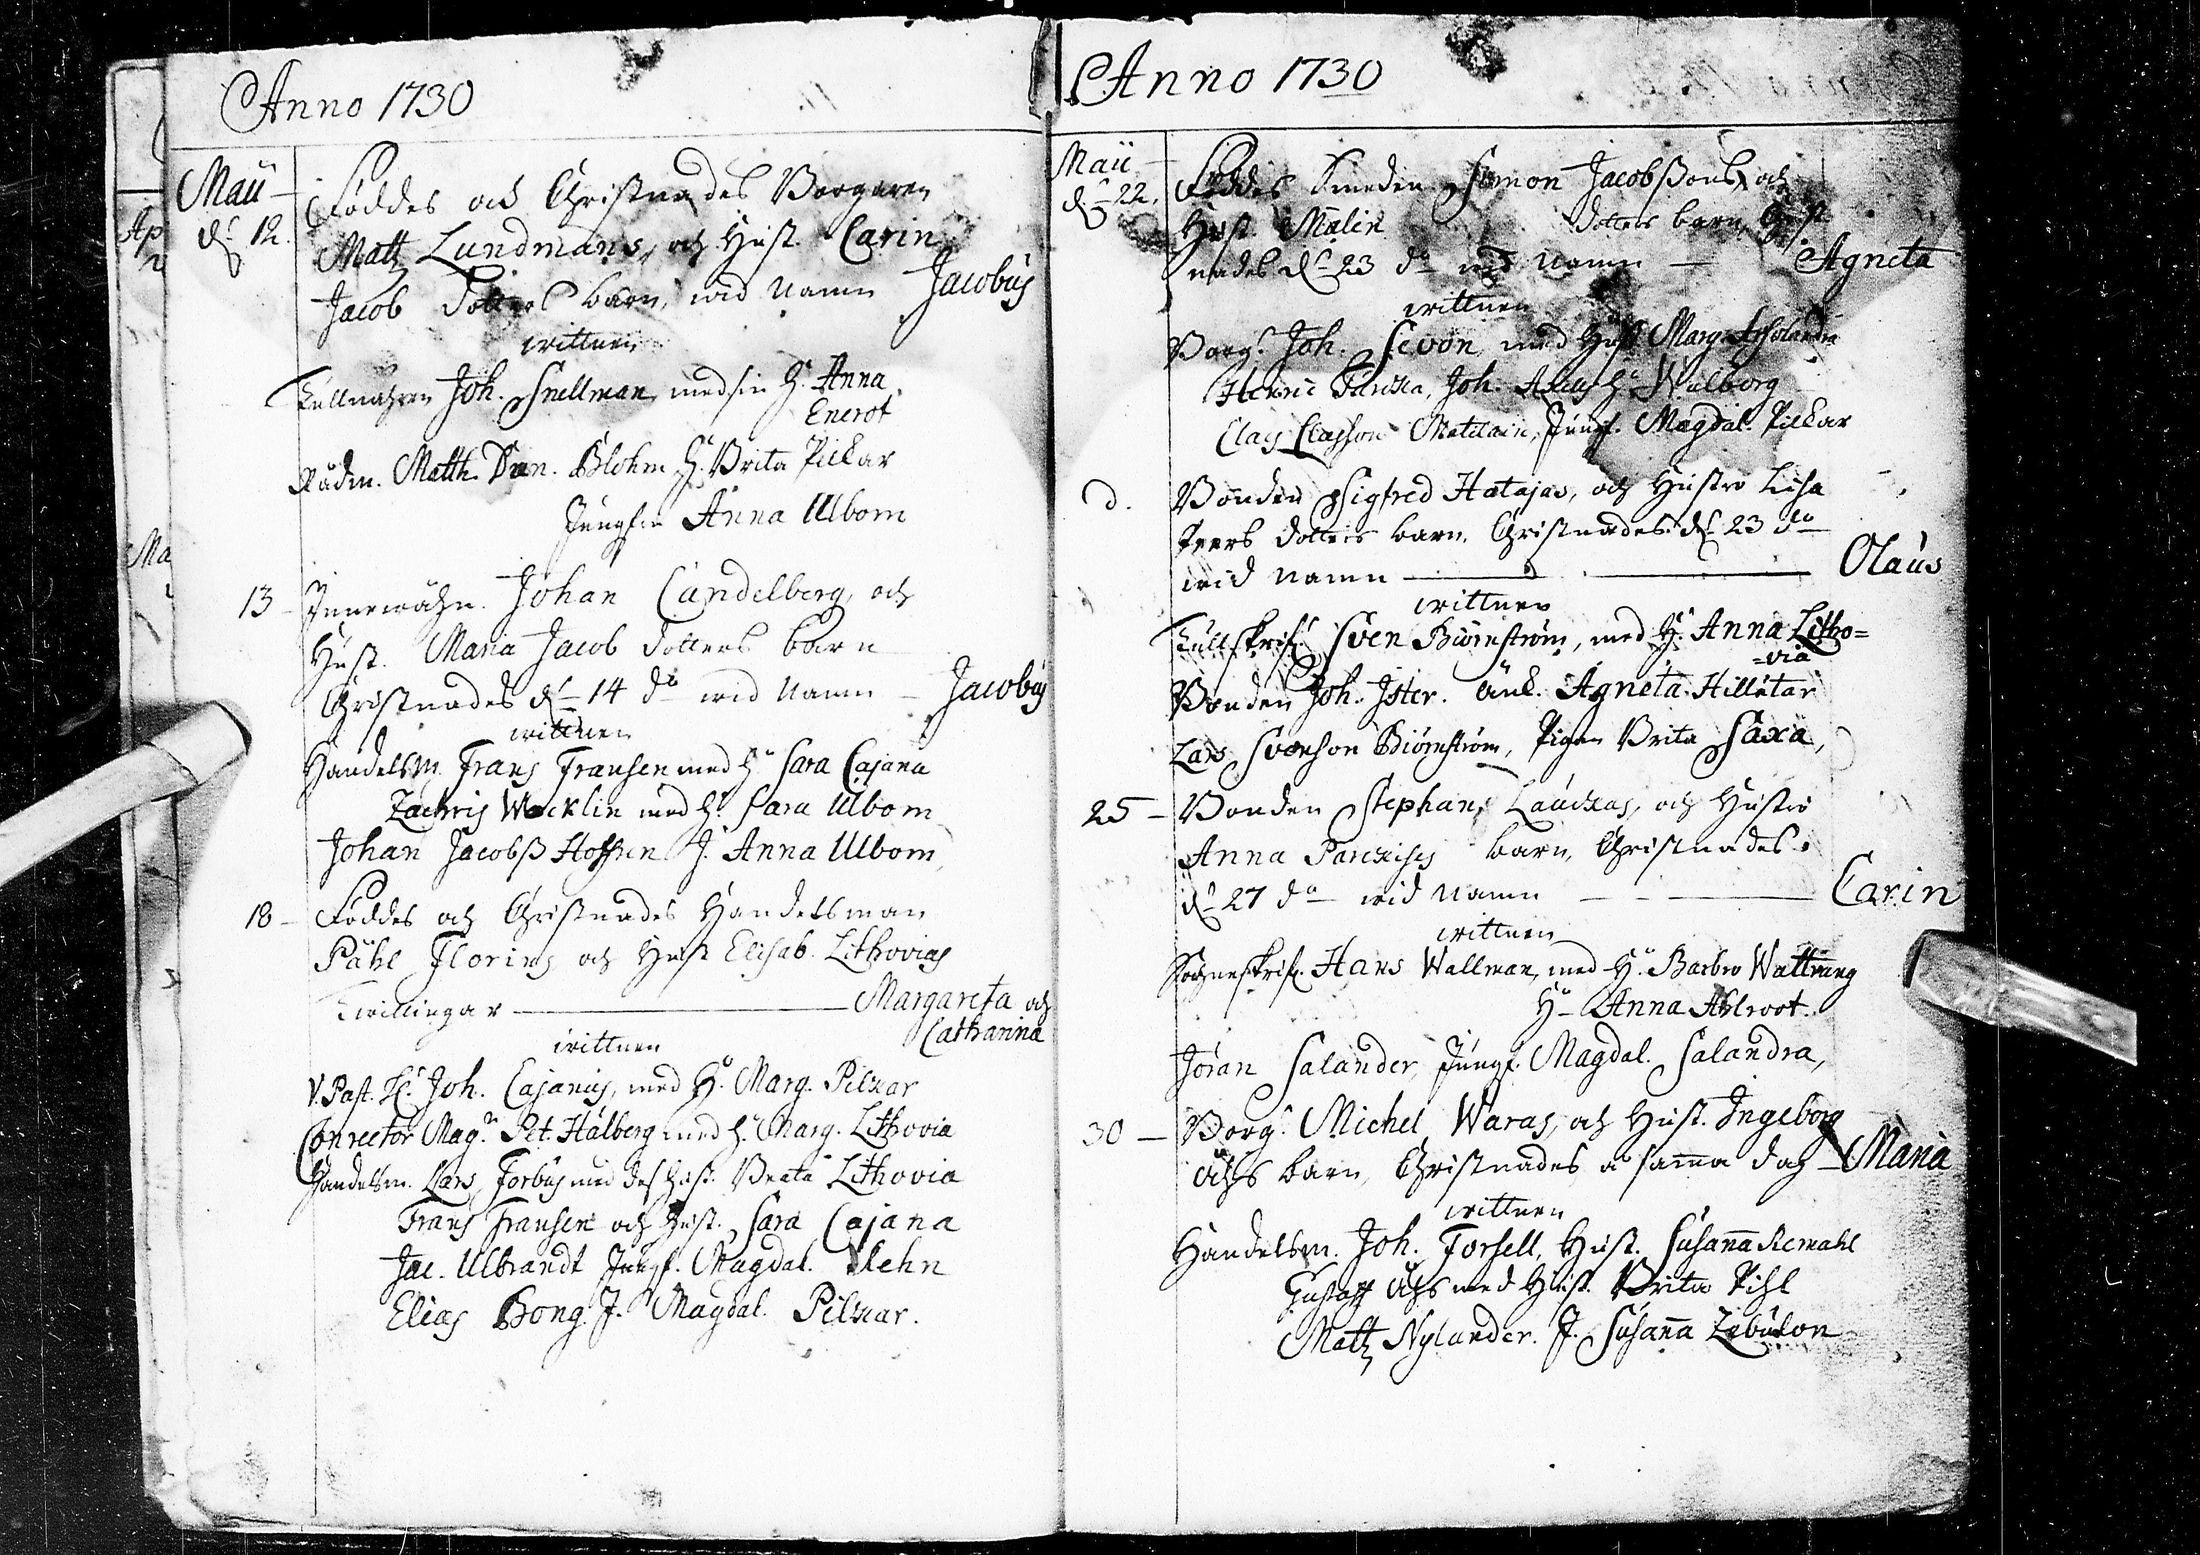 Anno 1730
Maii
d. 12.
Föddes och Christnades Borgaren
Matz Lundmans, och Hust. Carin
Jacob dotters barn, wid namn Jacobus
wittnen
Tullnähren Joh. Snellman, med sin H. Anna
Enerot
Rådm. Matth. Dan. Blohm H. Brita Pilkar
Jungfru Anna Ulbom
13 Innewåhn. Johan Candelberg, och
Hust. Maria Jacob dotters barn
Christnades d. 14 do wid namn Jacobus
wittnen
Handelsm. Frans Fransen med H. Sara Cajana
Zachris Wacklin med H. Sara Ulbom
Johan Jacobß Hoffren J. Anna Ulbom
18 Föddes och Christnades Handelsman
Påhl Florins och Hust Elisab. Lithovias
Twillingar Margareta och
Catharina
wittnen
V. Past. H. Joh. Cajanus, med H. Marg. Pilkar
Conrector Mag. Pet. Hálberg med H. Marg. Lithovia
Handelsm. Lars Forbus med des Hust. Beata Lithovia
Frans Fransen och Hust. Sara Cajana
Jac. Ulbrandt Jungf. Magdal. Lehn
Elias Bong. J. Magdal. Pilkar.
Anno 1730
Maii
d. 22.
Föddes Smeden Simon Jacobßons, och
Hust. Malin dotters barn, Christ
nades d. 23 do wid namn Agneta
wittnen
Borg. Joh. Sevon, med Hust Marg.
Henric Joh. H. Walborg
Clas Classon Jungf. Magdal. Pilkar
d. Bonden Sigfred Hatajas, och Hustro Lisa
Pers dotters barn. Christnades d. 23 do
wid namn Olaus
wittnen
Tullskrif. Sven Biörnström, med H. Anna Litho=
=via
Bonden Joh. Ister. änk. Agneta Hillotar
Lars Svenson Biörnström, Pigan Brita Saxa,
25 Bonden Stephan Lauckas, och Hustro
Anna Parckisis barn, Christnades
d. 27 do wid namn Carin
wittnen
Sochneskrif. Hans Wallman, med H. Barbro Wattrang
H. Anna Ahlroot.
Jöran Salander, Jungf. Magdal. Salandra,
30 Borg. Michel Waras, och Hust. Ingeborg
Åhs barn, Christnades a samma dag Maria
wittnen
Handelsm. Joh. Forsell, Hust. Susanna Remahl
Gustaff Åhs med Hust. Brita Pihl
Matz Nylander. J. Susanna Zebulon